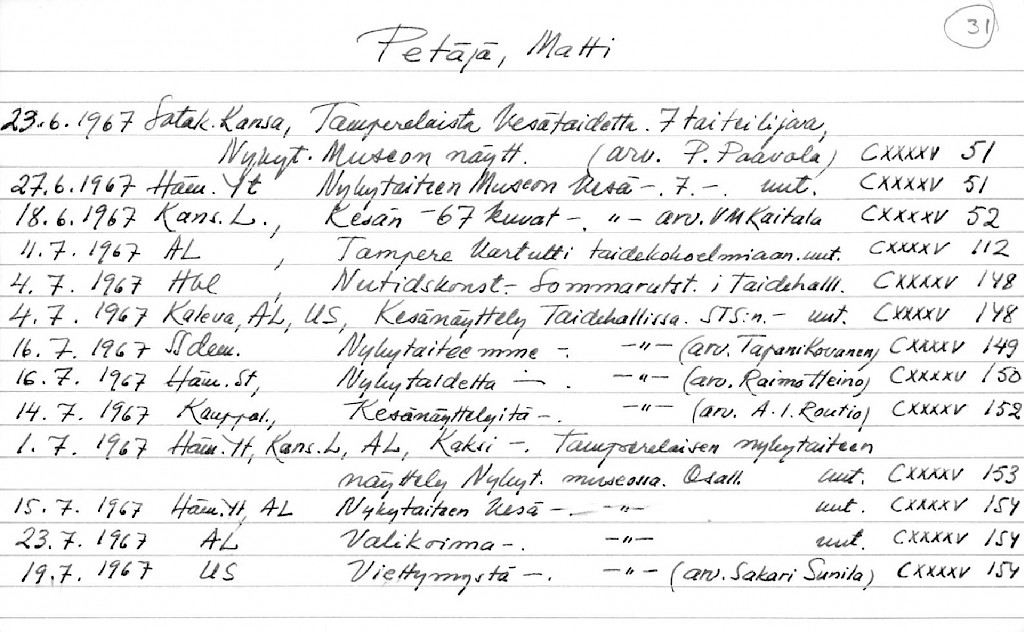 31
Petäjä, Matti
23.6.1967 Satak. Kansa, Tamperelaista Kesätaidetta. 7 taiteilijaa,
Nykyt. Museon näytt. (arv. P. Paavola) CXXXXV 51
27.6.1967 Häm. Yt Nykytaiteen Museon Kesä -. 7. -. uut. CXXXXV 51
18.6.1967 Kans. L., Kesän -67 kuvat -. -"- arv. VM Kaitala CXXXXV 52
4.7. 1967 AL , Tampere kartutti taidekokoelmiaan. uut. CXXXXV 112
4.7. 1967 Hbl , Nutidskonst - Sommarutst. i Taidehall. CXXXXV 148
4.7. 1967 Kaleva, AL, US, Kesänäyttely Taidehallissa. STS:n. - uut. CXXXXV 148
16.7. 1967 SSdem. Nykytaiteemme -. -"- (arv. Tapani Kovanen) CXXXXV 149
16.7. 1967 Häm. St, Nykytaidetta -. -"- (arv. Raimo Heino) CXXXXV 150
14.7. 1967 Kauppal., Kesänäyttelyitä -. -"- (arv. A.I. Routio) CXXXXV 152
1.7. 1967 Häm. Yt, Kans. L, AL, Kaksi -. Tamperelaisen nykytaiteen
näyttely Nykyt. museossa. Osall. uut. CXXXXV 153
15.7. 1967 Häm. Yt, AL Nykytaiteen Kesä -. -"- uut. CXXXXV 154
23.7. 1967 AL Valikoima -. -"- uut. CXXXXV 154
19.7. 1967 US Viettymystä -. -"- (arv. Sakari Sunila) CXXXXV 154